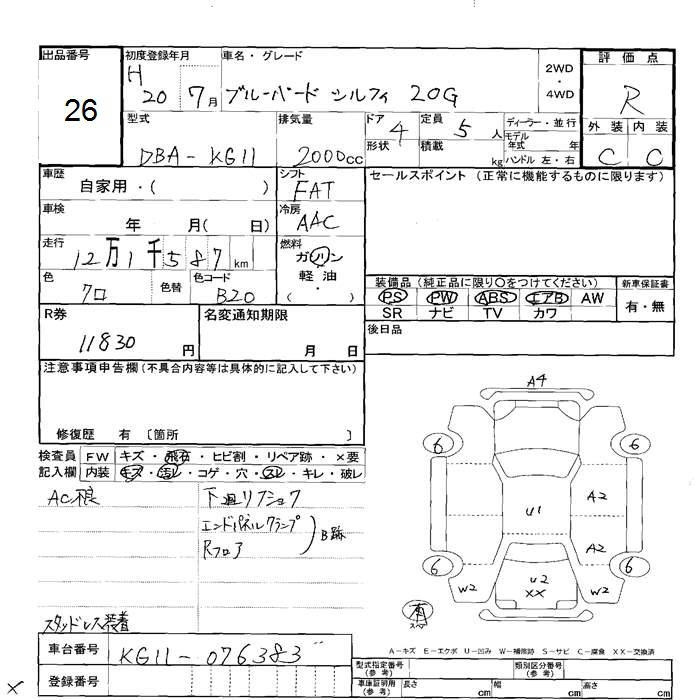 出品番号
26
初度登録年月
H 20 7月
車名・グレード
ブルーバード シルフィ 20G
2WD
・
4WD
評価点
R
外装 内装
C C
型式
DBA-KG11
排気量
2000cc
ドア 4
形状
定員 5人
積載 kg
ディーラー・並行
モデル年式 年
ハンドル 左・右
車歴
自家用・( )
シフト
FAT
セールスポイント (正常に機能するものに限ります)
車検
年 月( 日)
冷房
AAC
走行
12万1千587km
燃料
ガソリン
軽油
・
( )
色
クロ
色替
色コード
B20
装備品 (純正品に限り○をつけてください)
PS PW ABS エアB AW
SR ナビ TV カワ
新車保証書
有・無
R券
11830円
名変通知期限
月 日
後日品
注意事項申告欄 (不具合内容等は具体的に記入して下さい)
修復歴 有 〔箇所 〕
検査員記入欄
FW キズ・飛石・ヒビ割・リペア跡・×要
内装 キズ・汚レ・コゲ・穴・スレ・キレ・破レ
AC根
下廻リフショク
エンドパネルクランプ
Rフロア
B跡
スタッドレス装着
A4
6 6
A2
U1
A2
6 6
W2 U2 XX W2
有
スペア
A-キズ E-エクボ U-凹み W-補修跡 S-サビ C-腐食 XX-交換済
車台番号
KG11-076383
登録番号
型式指定番号
(参考)
類別区分番号
(参考)
車庫証明用
(参考)
長さ cm 幅 cm 高さ cm
×